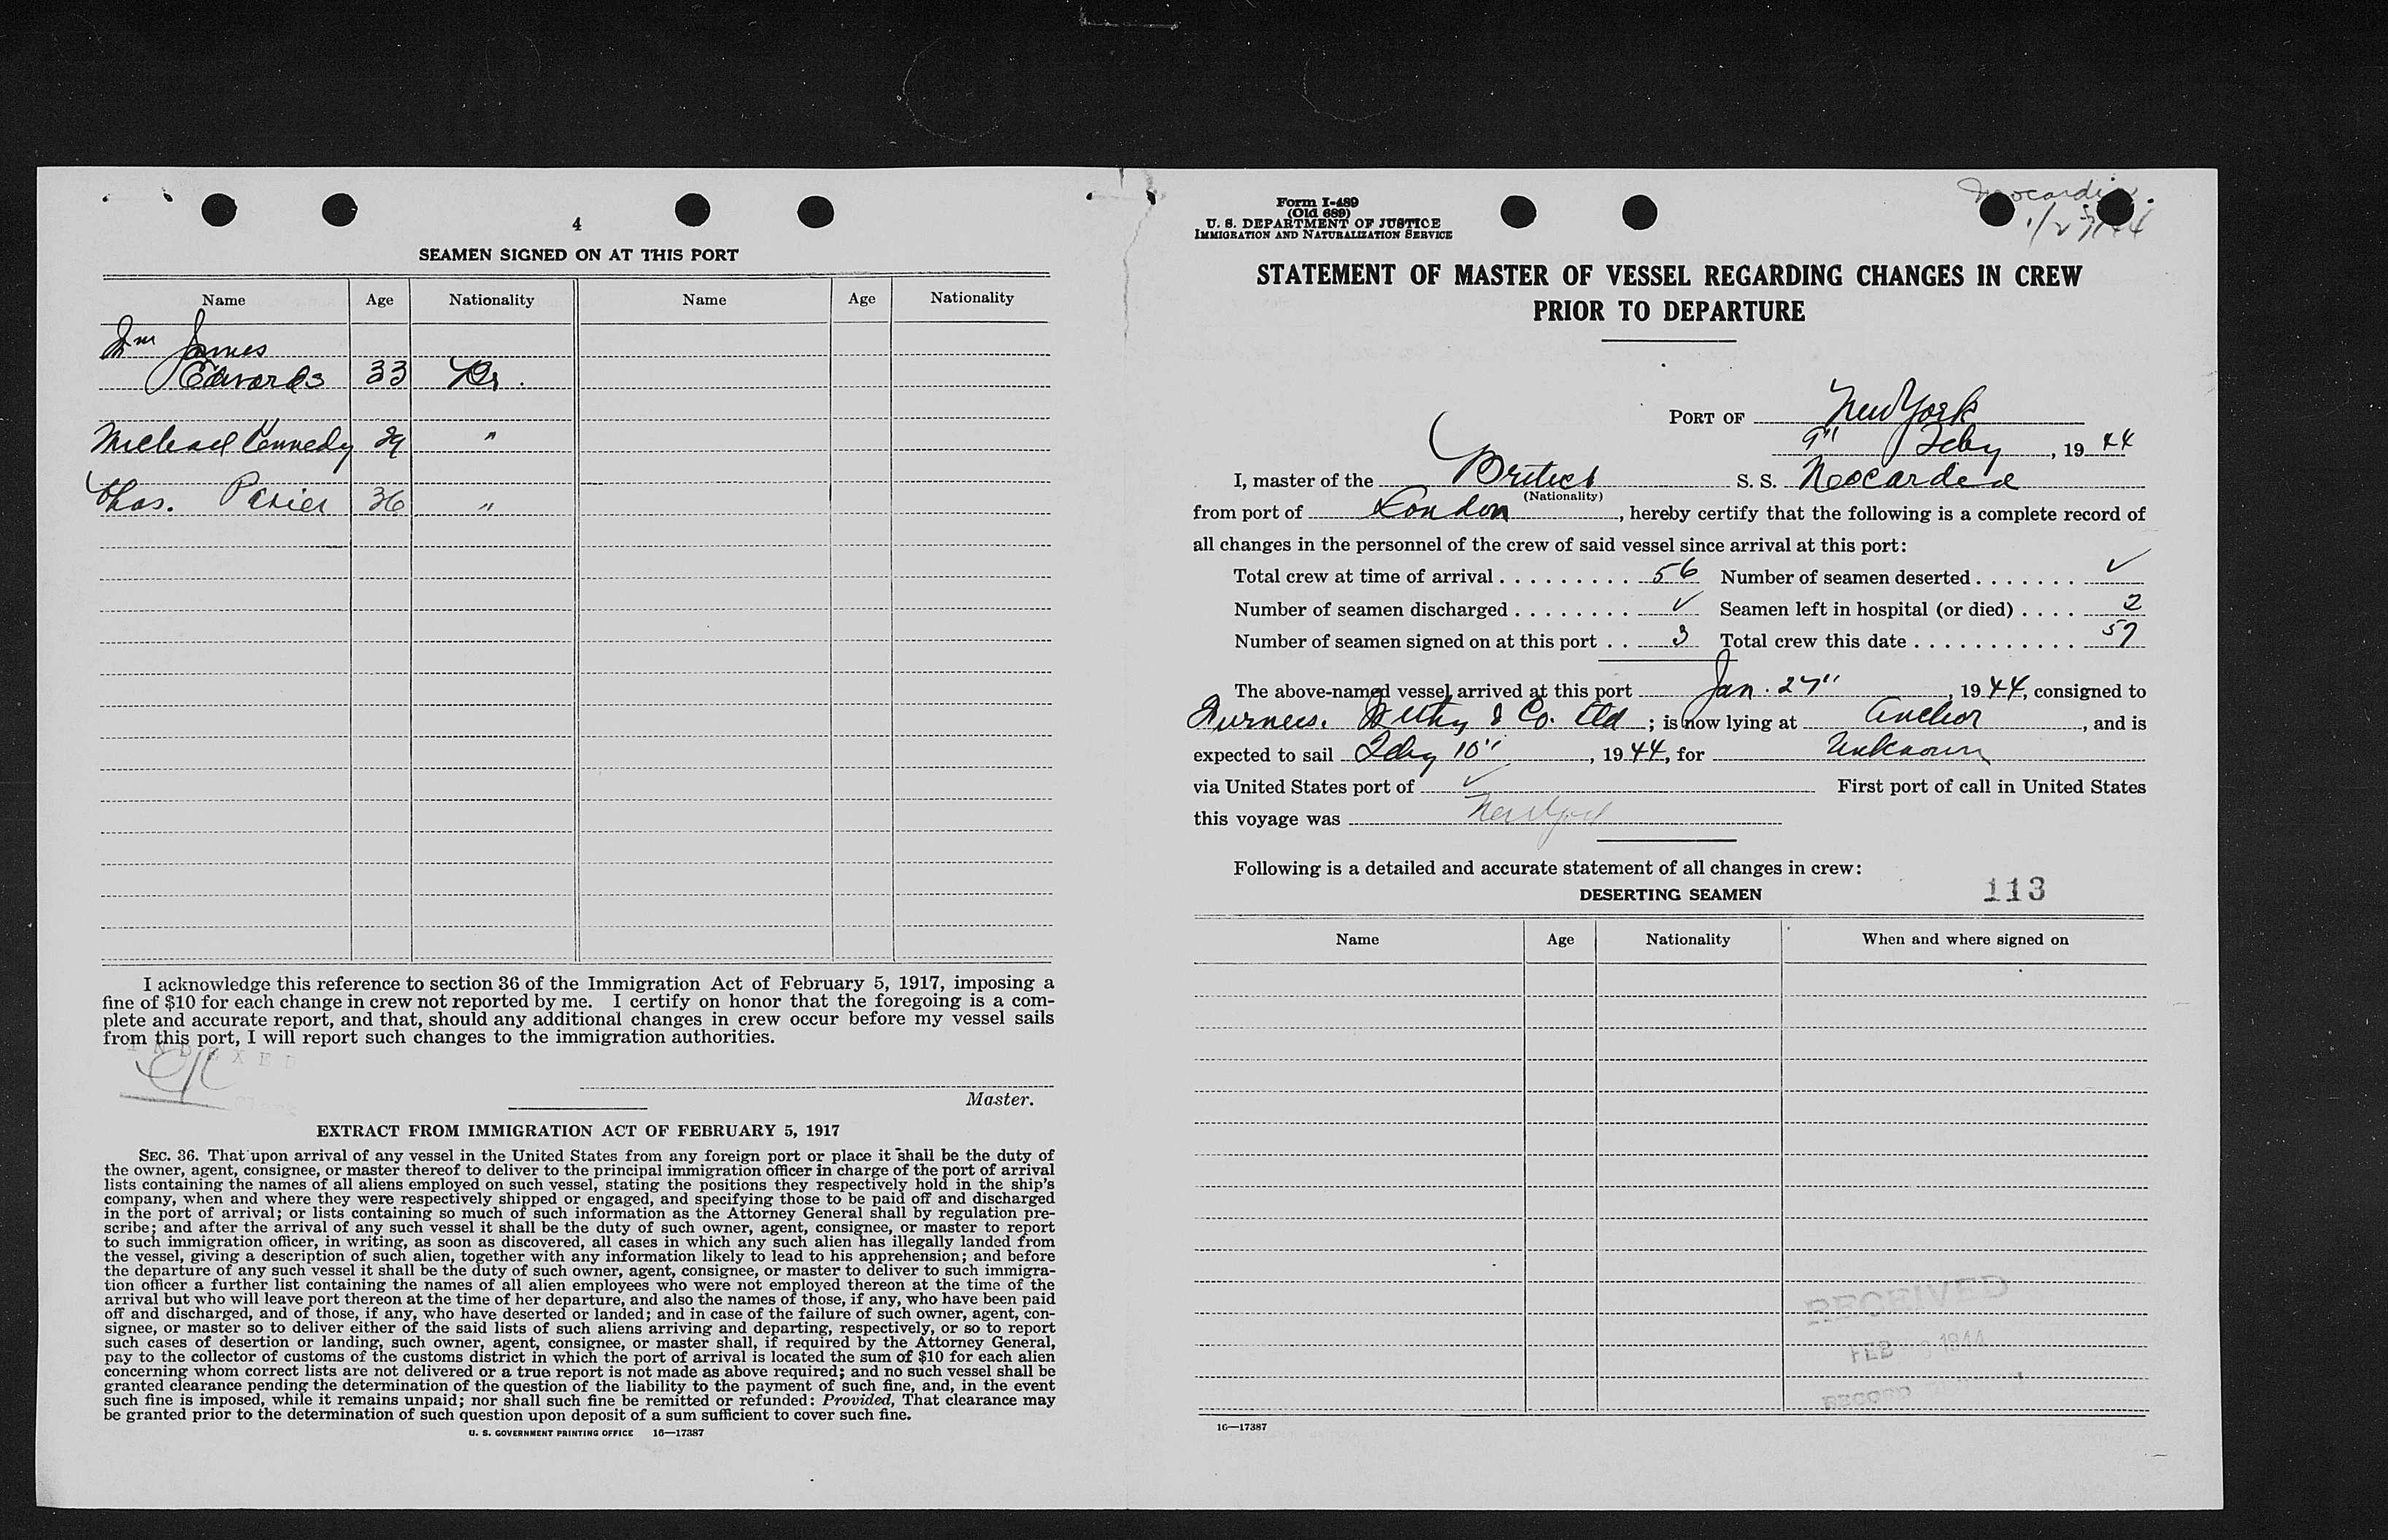 4
SEAMEN SIGNED ON AT THIS PORT
Name Age Nationality Name Age Nationality
Wm James
Edwards 33 Br.
Michael Kennedy 29 "
Chas. 36 "
I acknowledge this reference to section 36 of the Immigration Act of February 5, 1917, imposing a
fine of $10 for each change in crew not reported by me. I certify on honor that the foregoing is a com-
plete and accurate report, and that, should any additional changes in crew occur before my vessel sails
from this port, I will report such changes to the immigration authorities.
INDEXED
Master.
EXTRACT FROM IMMIGRATION ACT OF FEBRUARY 5, 1917
SEC. 36. That upon arrival of any vessel in the United States from any foreign port or place it shall be the duty of
the owner, agent, consignee, or master thereof to deliver to the principal immigration officer in charge of the port of arrival
lists containing the names of all aliens employed on such vessel, stating the positions they respectively hold in the ship's
company, when and where they were respectively shipped or engaged, and specifying those to be paid off and discharged
in the port of arrival; or lists containing so much of such information as the Attorney General shall by regulation pre-
scribe; and after the arrival of any such vessel it shall be the duty of such owner, agent, consignee, or master to report
to such immigration officer, in writing, as soon as discovered, all cases in which any such alien has illegally landed from
the vessel, giving a description of such alien, together with any information likely to lead to his apprehension; and before
the departure of any such vessel it shall be the duty of such owner, agent, consignee, or master to deliver to such immigra-
tion officer a further list containing the names of all alien employees who were not employed thereon at the time of the
arrival but who will leave port thereon at the time of her departure, and also the names of those, if any, who have been paid
off and discharged, and of those, if any, who have deserted or landed; and in case of the failure of such owner, agent, con-
signee, or master so to deliver either of the said lists of such aliens arriving and departing, respectively, or so to report
such cases of desertion or landing, such owner, agent, consignee, or master shall, if required by the Attorney General,
pay to the collector of customs of the customs district in which the port of arrival is located the sum of $10 for each alien
concerning whom correct lists are not delivered or a true report is not made as above required; and no such vessel shall be
granted clearance pending the determination of the question of the liability to the payment of such fine, and, in the event
such fine is imposed, while it remains unpaid; nor shall such fine be remitted or refunded: Provided, That clearance may
be granted prior to the determination of such question upon deposit of a sum sufficient to cover such fine.
U. S. GOVERNMENT PRINTING OFFICE 16—17387
Form I-489
(Old 689)
U. S. DEPARTMENT OF JUSTICE
IMMIGRATION AND NATURALIZATION SERVICE
Neocardia
1/27/44
STATEMENT OF MASTER OF VESSEL REGARDING CHANGES IN CREW
PRIOR TO DEPARTURE
PORT OF New York
9" Feby, 1944
I, master of the British S. S. Neocardia
(Nationality)
from port of London, hereby certify that the following is a complete record of
all changes in the personnel of the crew of said vessel since arrival at this port:
Total crew at time of arrival 56 Number of seamen deserted ✓
Number of seamen discharged ✓ Seamen left in hospital (or died) 2
Number of seamen signed on at this port 3 Total crew this date 57
The above-named vessel arrived at this port Jan. 27", 1944, consigned to
Furness. Withy & Co. Ltd; is now lying at Anchor, and is
expected to sail Feby 10", 1944, for Unknown
via United States port of ✓ First port of call in United States
this voyage was New York
Following is a detailed and accurate statement of all changes in crew:
DESERTING SEAMEN 113
Name Age Nationality When and where signed on
RECEIVED
FEB 1944
RECORD
16—17387